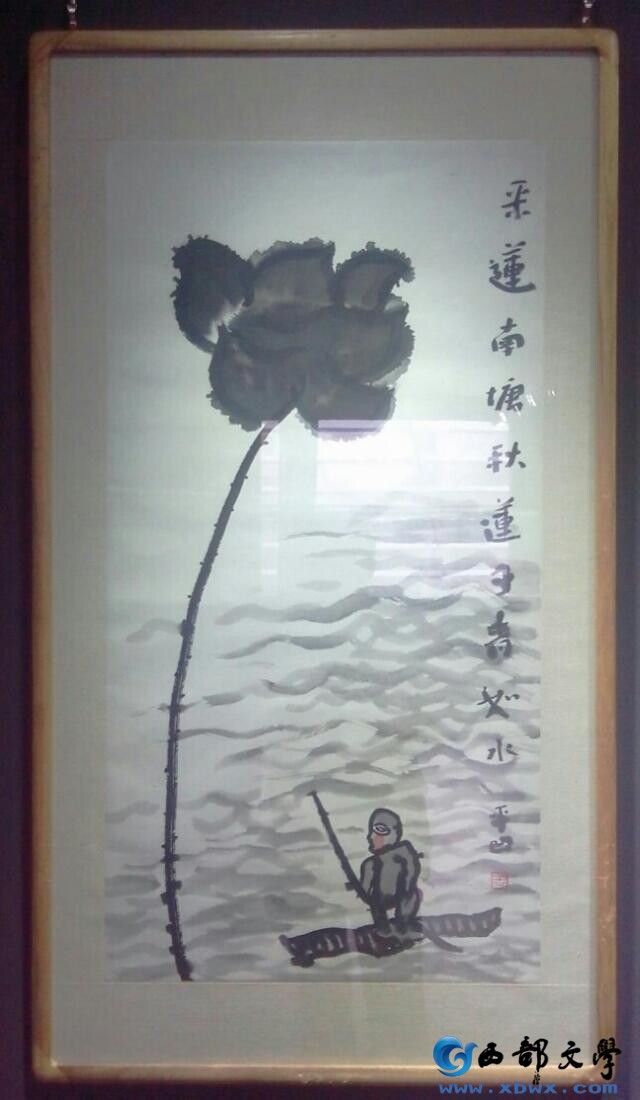 采蓮南塘秋蓮子青如水
平凹
西部文學
www.xbwx.com